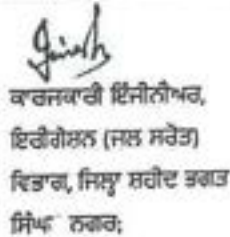 ਕਾਰਜਕਾਰੀ ਇੰਜੀਨੀਅਰ,
ਇਰੀਗੇਸ਼ਨ (ਜਲ ਸਰੋਤ)
ਵਿਭਾਗ, ਜਿਲ੍ਹਾ ਸ਼ਹੀਦ ਭਗਤ
ਸਿੰਘ ਨਗਰ;